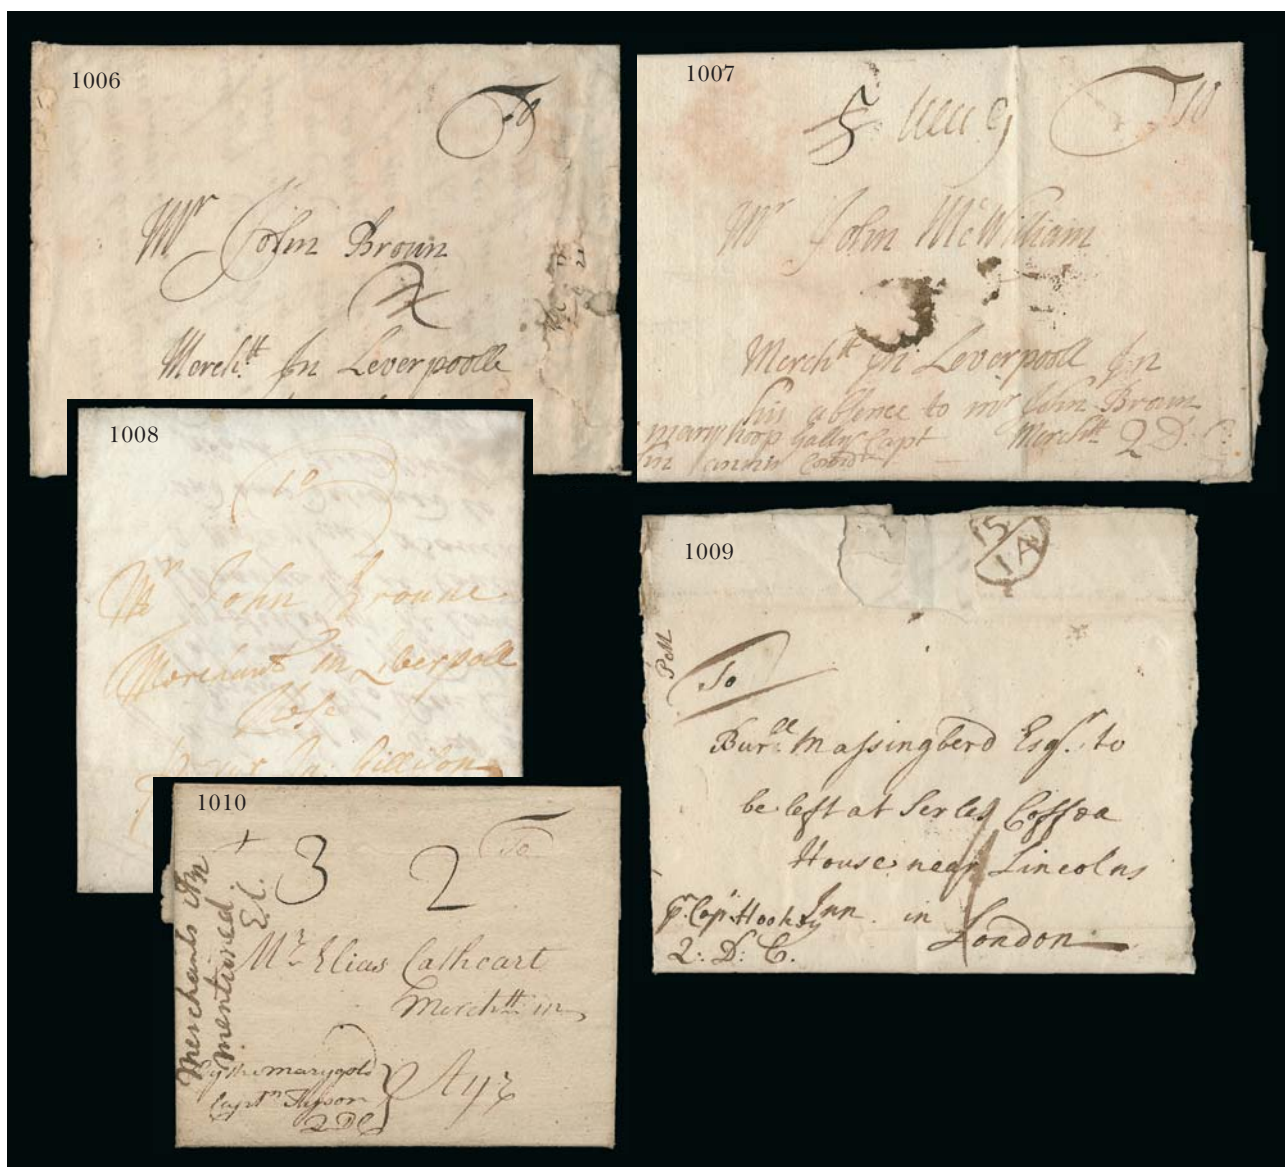 1006
To
Mr John Broun
Merchtt In Leverpoolle
1007
To
Mr John McWilliam
Merchtt In Leverpooll In
his absence to mr John Broun
mary hoop Gally Capt Merchtt Q D: C:
1008
To
Mr John Broune
Merchant in Liverpoll
1009
15/IA
To
Burll Massingberd Esqr. to
be left at Serles Coffea
House near Lincolns
Inn in
London
pr. Capt: Hooksy
Q: D: C.
1010
To
3 2
Merchants In
mentioned
Mr Elias Cathcart
Merchtt in
Ayr
By the marygold
Captn
Q D C